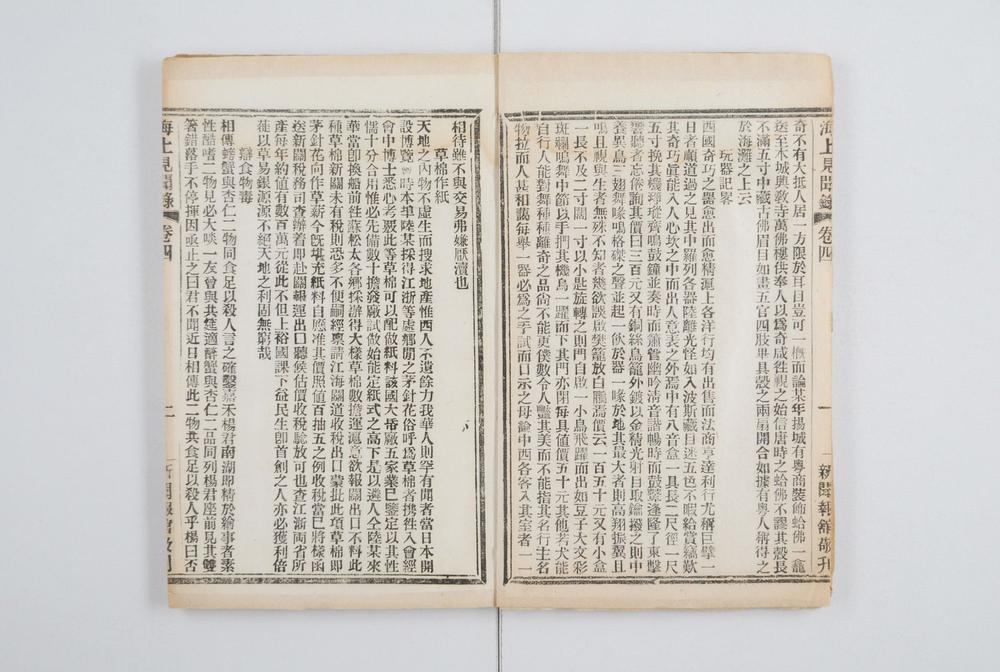 海上見聞錄 卷四 一 新聞報館敬刊
奇不有大抵人居一方限於耳目豈可一槪而論某年揚城有粤商裝飾蛤佛一龕
送至本城興敎寺萬佛樓供奉人以爲奇咸往視之始信唐時之蛤佛不謬其殼長
不滿五寸中藏古佛眉目如畫五官四肢畢具殼之兩扇開合如據有粤人稱得之
於海灘之上云
玩器記畧
西國奇巧之器愈出而愈精滬上各洋行均有出售而法商亨達利行尤稱巨擘一
日者順道過之見其中羅列各器陸離光怪如入波斯藏目迷五色不暇給賞竊歎
其奇巧眞能入人心坎之中而出人意表之外焉中有八音盒一具長二尺徑一尺
五寸挽其機琤瑽齊鳴鼓鐘並奏時而簫管幽吟淸音諧暢時而鼓鼙逢隆了東擊
響聽者忘倦詢其價曰三百元又有銅絲鳥籠外鍍以金精光射目取鑰撥之則中
養異鳥三翅舞喙鳴格磔之聲並起一飲於器一啄於地其最大者則高翔振翼且
鳴且覘與生者無殊不知者幾欲談啟樊籠放白鷳焉價云一百五十元又有小盒
一長不及二寸濶一寸以小匙旋轉之則門自啟一小鳥飛躍而出如豆子大文彩
斑斕鳴舞中節以手捫其機鳥一躍而下其門亦閉每具值價五十元其他若犬能
自行人能對舞種種離奇之品尙不能更僕數令人豔其美而不能指其名行主名
物拉而人甚和藹每舉一器必爲之手試而口示之毋論中西各客入其室者一一
相待雖不與交易弗嫌厭瀆也
草棉作紙
天地之內物不虛生而搜求地產惟西人不遺餘力我華人則罕有聞者當日本開
設博覽會時本年陸某採得江浙等處鄉間之茅針花俗呼爲草棉者携往入會經
會中博士悉心考覈此等草棉可以配做紙料該國大番廠五家業已鑒定以其性
懦十分合用惟必先備數十擔發廠試做始能定紙式之高下是以遴人仝陸某來
華當卽換船前往蘇松太各鄉採辦得大樣草棉數擔運滬意欲報關出口不料此
種草棉新關未有稅則恐多不便嗣經稟請江海關道收稅出口蒙批此項草棉卽
茅針花向作草薪今旣堪充紙料自應准其價照値百抽五之例收稅當已將樣函
送新關稅務司查辦着卽赴關報運出口聽侯估價收稅騐放可也查江浙兩省所
產每年約値有數百萬元從此不但上裕國課下益民生卽首創之人亦必獲利倍
徒以草易銀源源不絕天地之利固無窮哉
辯食物毒
相傳螃蟹與杏仁二物同食足以殺人言之確鑿嘉禾楊君南湖卽精於繪事者素
性酷嗜二物見必大啖一友曾與共筵適醉蟹與杏仁二品同列楊君座前見其雙
箸錯落手不停揮因亟止之曰君不聞近日相傳此二物共食足以殺人乎楊曰否
海上見聞錄 卷四 二 新聞報館敬刊